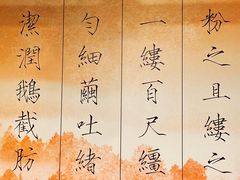 粉之且縷之
一縷百尺繮
勻細蠒吐緒
潔潤鵝截肪